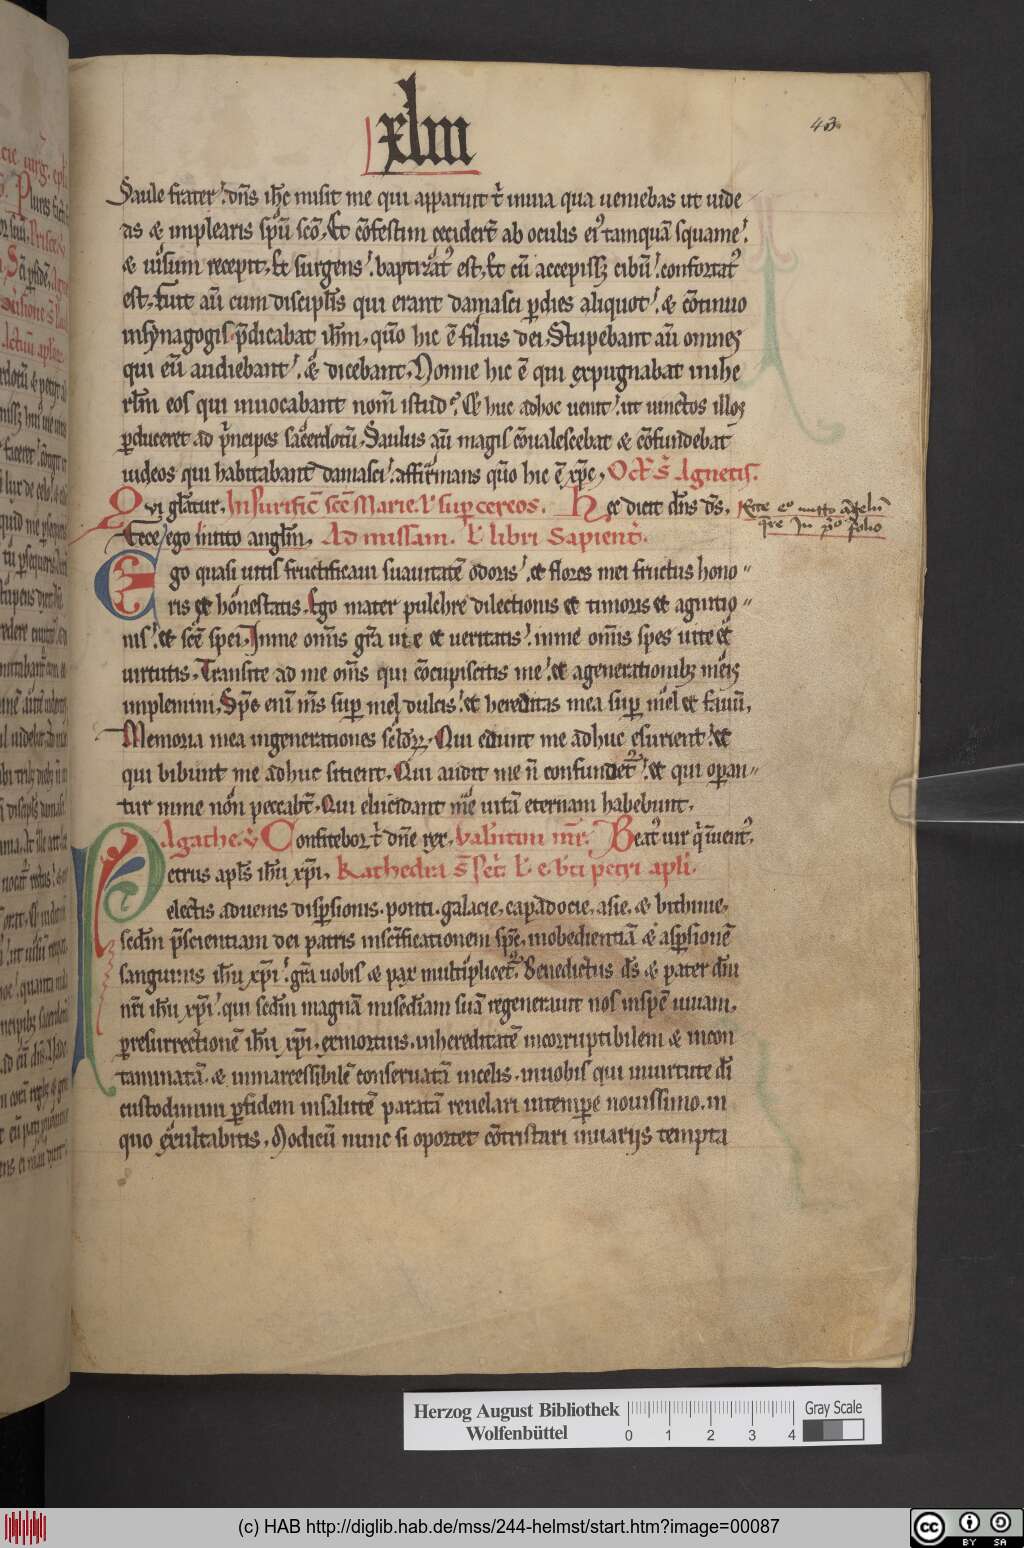 xlııı
43
Saule frater! dn̄s ih̄c misit me qui apparuit t̄ inuia qua ueniebas ut uide
as & implearis sp̄u sc̄o, Et cōfestim ceciderт̄ ab oculis ei᷒ tamquā squame!
& uisum recepit, Et surgens! baptizat᷒ est, Et cū accepiss& cibū! confortat᷒
est, Fuit aū cum discipl̄is qui erant damasci ꝑdies aliquot! & cōtinuo
insynagogis p̄dicabat ih̄m, quō hic ē filius dei, Stupebant aū omnes
qui eū audiebant! & dicebant, Nonne hic ē qui expugnabat inihe
rl̄m eos qui inuocabant nom̄ istud? Et huc adhoc uenit! ut uinctos illos
ꝑduceret ad p̄ncipes sacerdotū, Saulus aū magis cōualescebat & cōfundebat
iudeos qui habitabant damasci! affirmans quō hic ē xp̄c, Oct̄ s̄ Agnetis.
Qui gl̄atur, In Purific̄ sc̄e Marie. l̄ sup cereos. Hec dicit dn̄s ds̄,
Ecce ego mitto angl̄m, Ad missam. l̄ libri Sapient̄.
Ecce eo mitto āgelū
q̄re in p̄o folio
Ego quasi uitis fructificaui suauitatē odoris! et flores mei fructus hono
ris et honestatis, Ego mater pulchre dilectionis et timoris et agnitio
nis! et sc̄e spei, Inme om̄is gr̄a uie et ueritatis! inme om̄is spes uite et
uirtutis, Transite ad me om̄s qui cōcupiscitis me! et agenerationib; meis
implemini, Sp̄c enī m̄s sup mel dulcis! et hereditas mea sup mel et fauū,
Memoria mea ingenerationes sclōꝝ, Qui edunt me adhuc esurient! et
qui bibunt me adhuc sitient, Qui audit me n̄ confundet᷒! et qui oꝑan
tur inme non peccabt̄, Qui elucidant me uitā eternam habebunt,
Agathe. v̄ Confitebor t̄ dn̄e rex, Valentini mr̄. Beat᷒ uir q̄ inuent᷒,
Petrus apl̄s ih̄u xp̄i, Kathedra s̄ Pet̄. l̄. e. b̄ti petri apl̄i.
electis aduenis disꝑsionis, ponti, galacie, capadocie, asie, & bithinie,
scd̄m p̄scientiam dei patris insc̄ificationem sp̄c, inobedientiā & asꝑsionē
sanguinis ih̄u xp̄i! gr̄a uobis & pax multiplicet᷒, Benedictus ds̄ & pater dn̄i
nr̄i ih̄u xp̄i! qui scd̄m magnā misc̄diam suā regenerauit nos inspē uiuam,
ꝑresurrectionē ih̄u xp̄i, exmortuis, inhereditatē incorruptibilem & incon
taminatā, & inmarcessibilē conseruatā incelis, inuobis qui inuirtute dī
custodimini ꝑfidem insalutē paratā reuelari intempe nouissimo, in
quo exultabitis, Modicū nunc si oportet cōtristari inuariis tempta
Herzog August Bibliothek
Wolfenbüttel
0 1 2 3 4
Gray Scale
(c) HAB http://diglib.hab.de/mss/244-helmst/start.htm?image=00087
cc BY SA